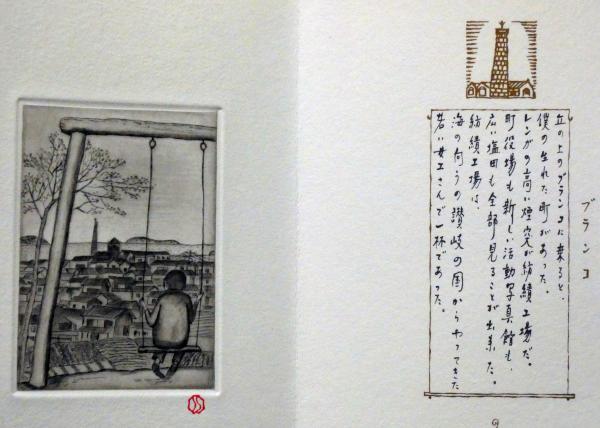 ブランコ
丘の上のブランコに乗ると、
僕の生れた町があった。
レンガの高い煙突が紡績工場だ。
町役場も新しい活動写真館も、
広い塩田も全部見ることが出来た。
紡績工場は、
海の向うの讃岐の国からやってきた
若い女工さんで一杯であった。